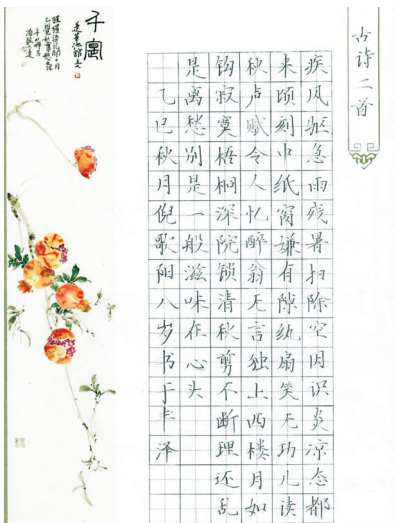 古诗二首
疾风驱急雨残暑扫除空因识炎凉态都
来顷刻中纸窗嫌有隙纨扇笑无功儿读
秋声赋令人忆醉翁无言独上西楼月如
钩寂寞梧桐深院锁清秋剪不断理还乱
是离愁别是一般滋味在心头
乙巳秋月倪歌阳八岁书于丰泽